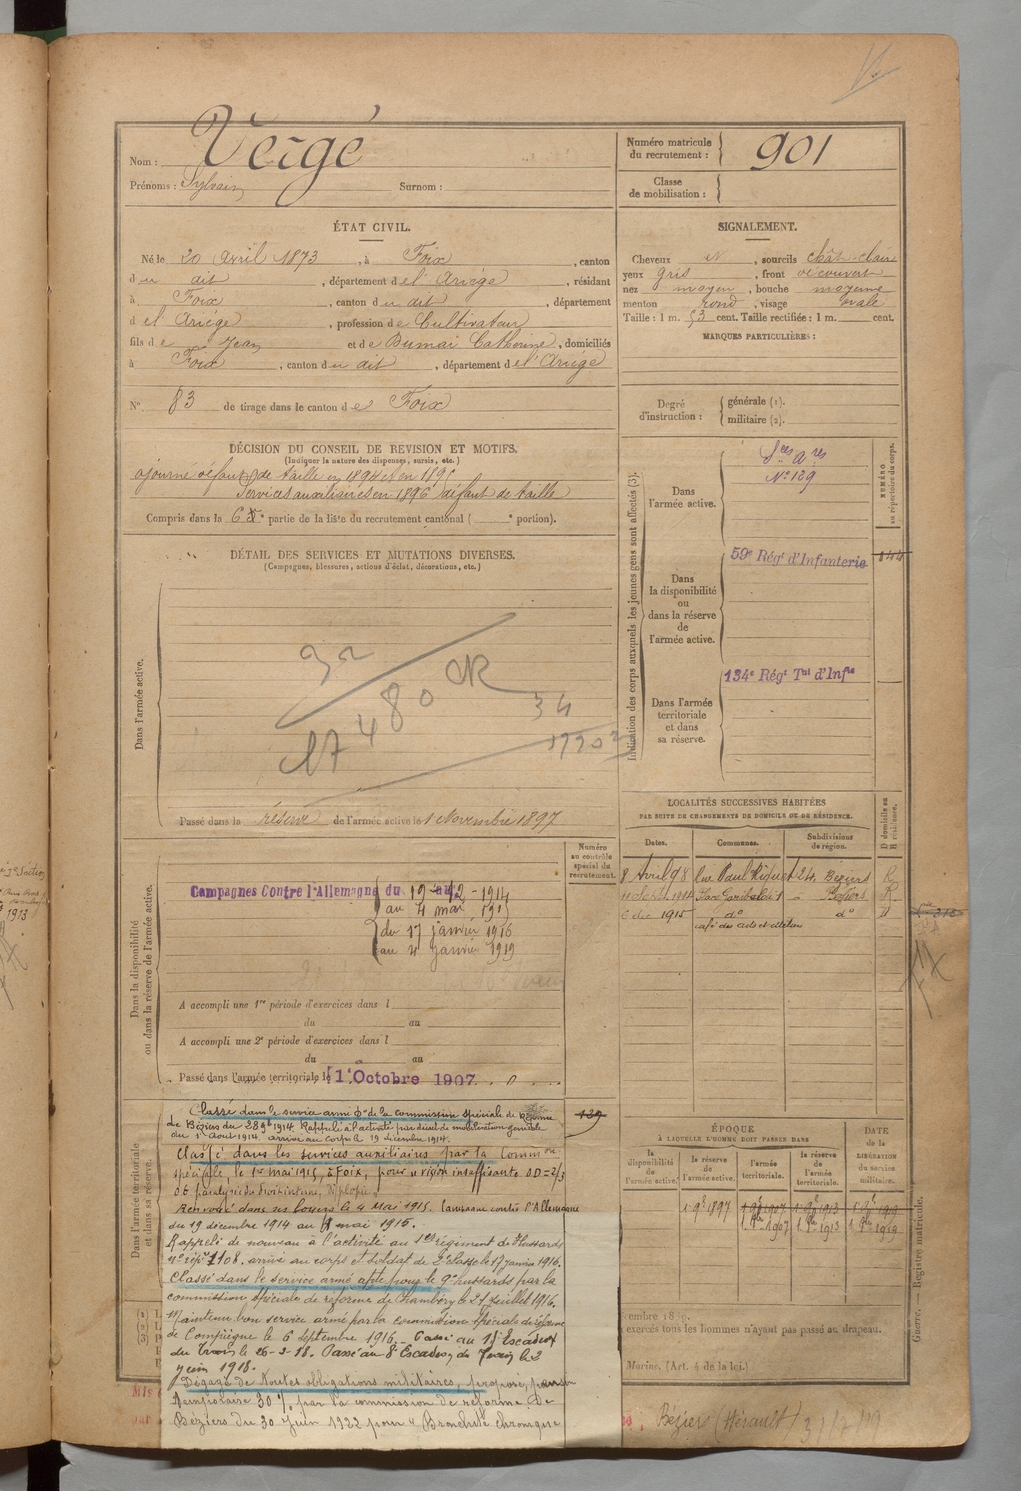 Nom : Vergé
Prénoms : Sylvain Surnom :
Numéro matricule du recrutement : 901
Classe de mobilisation :
ÉTAT CIVIL.
Né le 20 Avril 1873, à Foix, canton
du dit, département de l'Ariège, résidant
à Foix, canton du dit, département
de l'Ariège, profession de Cultivateur
fils de Jean et de Bumai Catherine, domiciliés
à Foix, canton du dit, département de l'Ariège
N° 83 de tirage dans le canton de Foix
SIGNALEMENT.
Cheveux et, sourcils chât-clair
yeux gris, front découvert
nez moyen, bouche moyenne
menton rond, visage ovale
Taille : 1 m. 53 cent. Taille rectifiée : 1 m. cent.
MARQUES PARTICULIÈRES :
Degré d'instruction : générale (1).
militaire (2).
DÉCISION DU CONSEIL DE REVISION ET MOTIFS.
(Indiquer la nature des dispenses, sursis, etc.)
ajourné défaut de taille en 1894 et en 189
Services auxiliaires en 1896 défaut de taille
Compris dans la 6e partie de la liste du recrutement cantonal ( e portion).
DÉTAIL DES SERVICES ET MUTATIONS DIVERSES.
(Campagnes, blessures, actions d'éclat, décorations, etc.)
Dans l'armée active.
92
17480
34
Passé dans la réserve de l'armée active le 1 Novembre 1897
Indication des corps auxquels les jeunes gens sont affectés (3).
NUMÉRO au répertoire du corps.
Dans l'armée active.
Sces Ares
N° 129
Dans la disponibilité ou dans la réserve de l'armée active.
59e Régt d'Infanterie
844
Dans l'armée territoriale et dans sa réserve.
134e Régt Tal d'Infie
LOCALITÉS SUCCESSIVES HABITÉES
PAR SUITE DE CHANGEMENTS DE DOMICILE OU DE RÉSIDENCE.
Dates. Communes. Subdivisions de région. D domicile ou R résidence.
8 Avril 98 Rue Paul Riquet 24 Béziers R
Place Garibaldi 1 Béziers R
6 dec 1915 d° d°
café des arts
Dans la disponibilité ou dans la réserve de l'armée active.
Numéro au contrôle spécial du recrutement.
Campagnes Contre l'Allemagne du 19-12-1914
au 4 mai 1915
du 17 janvier 1916
au 4 janvier 1919
A accompli une 1re période d'exercices dans l
du au
A accompli une 2e période d'exercices dans l
du au
Passé dans l'armée territoriale le 1er Octobre 1907.
Dans l'armée territoriale et dans sa réserve.
139
Classé dans le service armé de la commission spéciale de Réforme
de Béziers du 28 9bre 1914 Rappelé à l'activité par décret de mobilisation générale
du 1er Aout 1914 arrivé au corps le 19 décembre 1914.
Classé dans les services auxiliaires par la Common
spéciale, le 1er mai 1915, à Foix, pour vision insuffisante OD=2/3
OG paralysie du droit interne, diplopie
Renvoyé dans ses foyers le 4 mai 1915. Campagne contre l'Allemagne
du 19 décembre 1914 au 4 mai 1915.
Rappelé de nouveau à l'activité au 1er régiment de Hussards
n° répre 1108. arrivé au corps et soldat de 2e classe le 17 janvier 1916.
Classé dans le service armé apte pour le 9e hussards par la
commission spéciale de réforme de Chambéry le 21 juillet 1916.
Maintenu bon service armé par la commission spéciale de réforme
de Compiègne le 6 septembre 1916. Passé au 15e Escadron
du train le 26-3-18. Passé au 8e Escadron du Train le 2
juin 1918.
Dégagé de toutes obligations militaires, proposé pension
temporaire 30% par la commission de réforme de
Béziers du 30 juin 1922 pour « Bronchite chronique
ÉPOQUE
À LAQUELLE L'HOMME DOIT PASSER DANS
la disponibilité de l'armée active. la réserve de l'armée active. l'armée territoriale. la réserve de l'armée territoriale.
DATE de la LIBÉRATION du service militaire.
1 9bre 1897 1 8bre 1907 1 8bre 1913 1 8bre 1919
1 8bre 1907 1 8bre 1913 1 8bre 1919
exercés tous les hommes n'ayant pas passé au drapeau.
Marine, (Art. 4 de la loi.)
Guerre. — Registre matricule.
Béziers (Hérault) 31/7/19